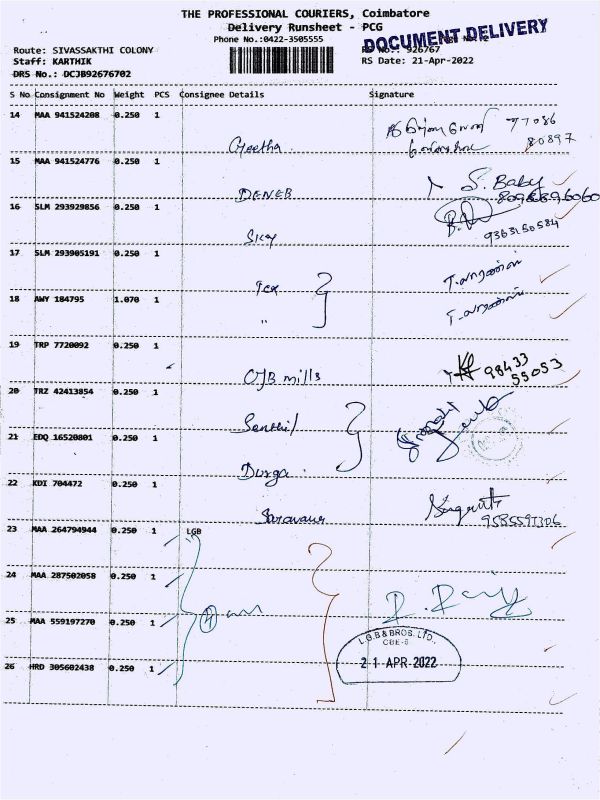 THE PROFESSIONAL COURIERS, Coimbatore
Delivery Runsheet - PCG
DOCUMENT DELIVERY
Phone No.:0422-3505555
Route: SIVASSAKTHI COLONY
926767
Staff: KARTHIK
RS Date: 21-Apr-2022
DRS No.: DCJB92676702
S No Consignment No Weight PCS Consignee Details Signature
14 MAA 941524208 0.250 1
Geetha
77086
80897
15 MAA 941524776 0.250 1
DENEB
S. Baby
16 SLM 293929856 0.250 1
Sky
9363150584
17 SLM 293905191 0.250 1
Tex
18 AWY 184795 1.070 1
"
19 TRP 7720092 0.250 1
CJB mills
98433
55053
20 TRZ 42413854 0.250 1
Senthil
21 EDQ 16520801 0.250 1
Durga
22 KDI 704472 0.250 1
Saravana
23 MAA 264794944 0.250 1 LGB
24 MAA 287502058 0.250 1
25 MAA 559197270 0.250 1
4
26 HRD 305602438 0.250 1
L.G.B & BROS. LTD.,
CBE-6
21 APR 2022